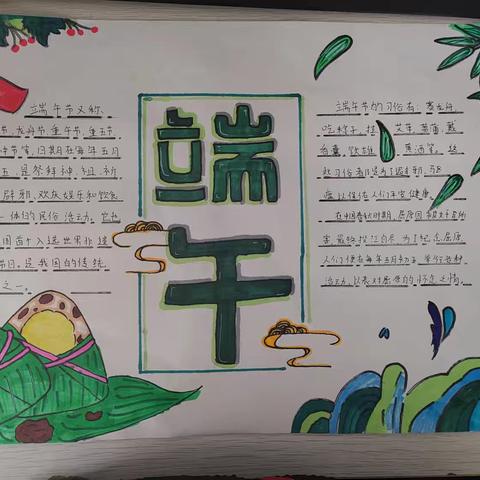 端午节又称
节,龙舟节,重午节,重五节
中节等,日期在每年五月
五,是祭拜神,祖,祈
辟邪,欢庆娱乐和饮食
一体的民俗活动,它也
国首个入选世界非遗
节日,是我国的传统
之一。
端午
端午节的习俗有:赛龙舟,
吃粽子,挂艾草,菖蒲,戴
香囊,饮雄黄酒等,这
些习俗都是为了驱邪,防
病以保佑人们平安健康。
在中国春秋时期,屈原因
害,最终投江自尽,为了纪念屈原,
人们便在每年五月初五,举行各种
活动,以表对屈原的怀念之情。